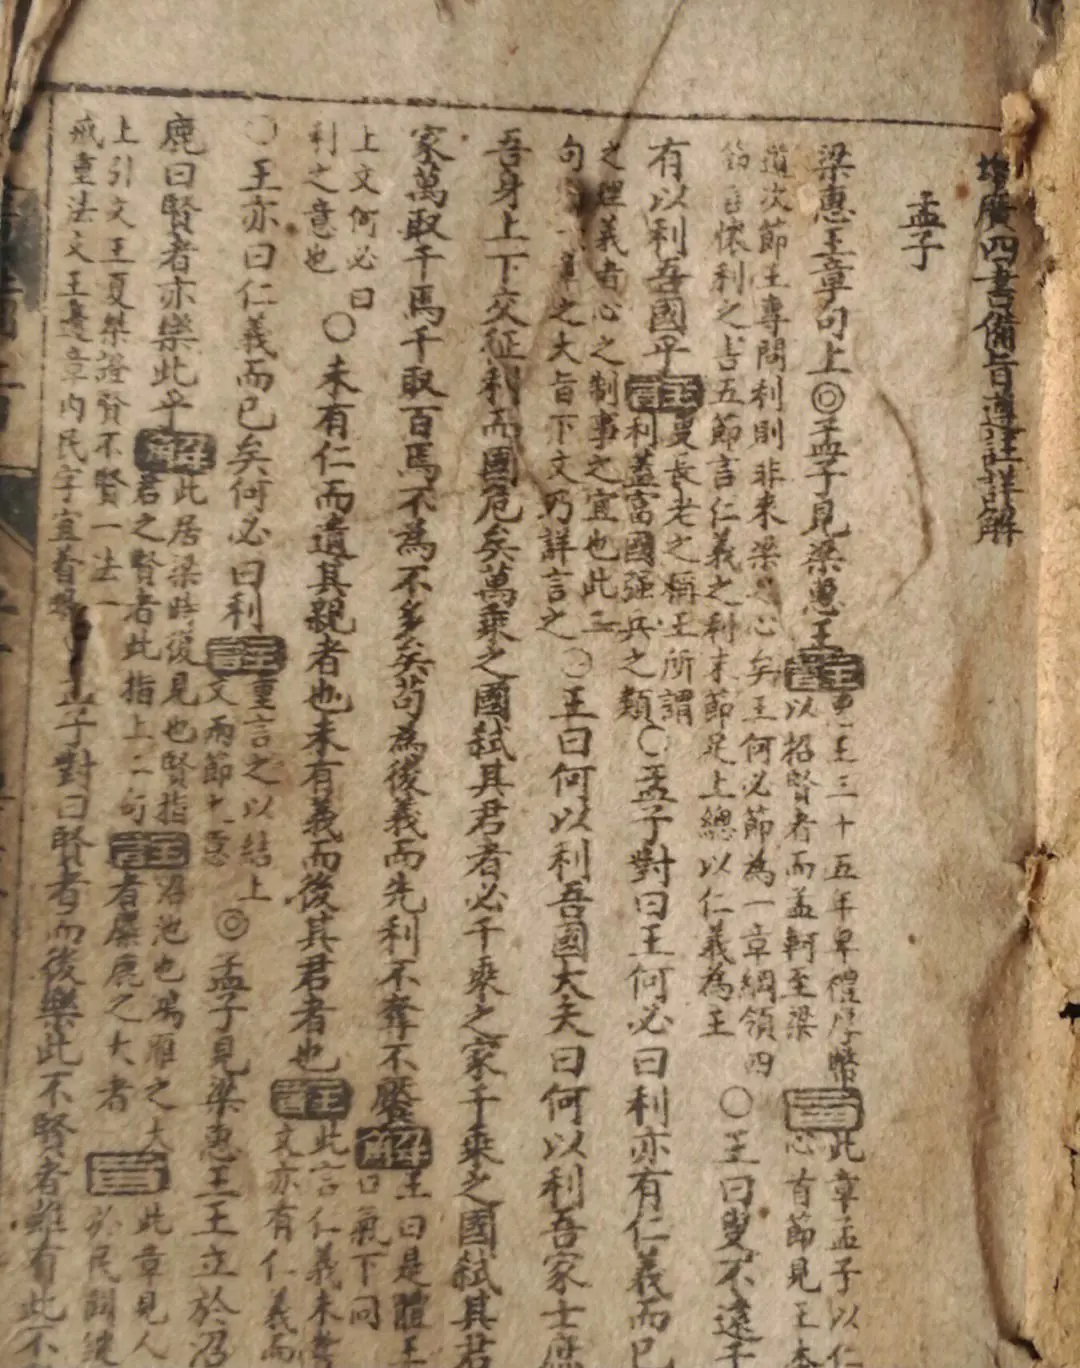 增廣四書備旨遵註詳解
孟子
梁惠王章句上◎孟子見梁惠王 註 王三十五年卑禮厚幣 以招賢者而孟軻至梁 旨 此章孟子以仁 心首節見王本
道次節王專問利則非來梁之心矣王何必節為一章綱領四 節言懷利之害五節言仁義之利末節足上總以仁義為主 ○王曰叟不遠千
有以利吾國乎 註 叟長老之稱王所謂 利蓋富國强兵之類 ○孟子對曰王何必曰利亦有仁義而已
之理義者心之制事之宜也此二 句一章之大旨下文乃詳言之 ○王曰何以利吾國大夫曰何以利吾家士庶
吾身上下交征利而國危矣萬乘之國弑其君者必千乘之家千乘之國弑其君
家萬取千焉千取百焉不為不多矣苟為後義而先利不奪不饜 解 王曰是體王 口氣下同
上文何必曰 利之意也 ○未有仁而遺其親者也未有義而後其君者也 註 此言仁義未嘗 文亦有仁義而
○王亦曰仁義而已矣何必曰利 註 重言之以結上 文兩節之意 ◎孟子見梁惠王王立於沼
鹿曰賢者亦樂此乎 解 此居梁時復見也賢指 君之賢者此指上二句 註 沼池也鴻雁之大 者麋鹿之大者 旨 此章見人 於民間
上引文王夏桀證賢不賢一法一 戒重法文王邊章內民字宜着 孟子對曰賢者而後樂此不賢者雖有此不